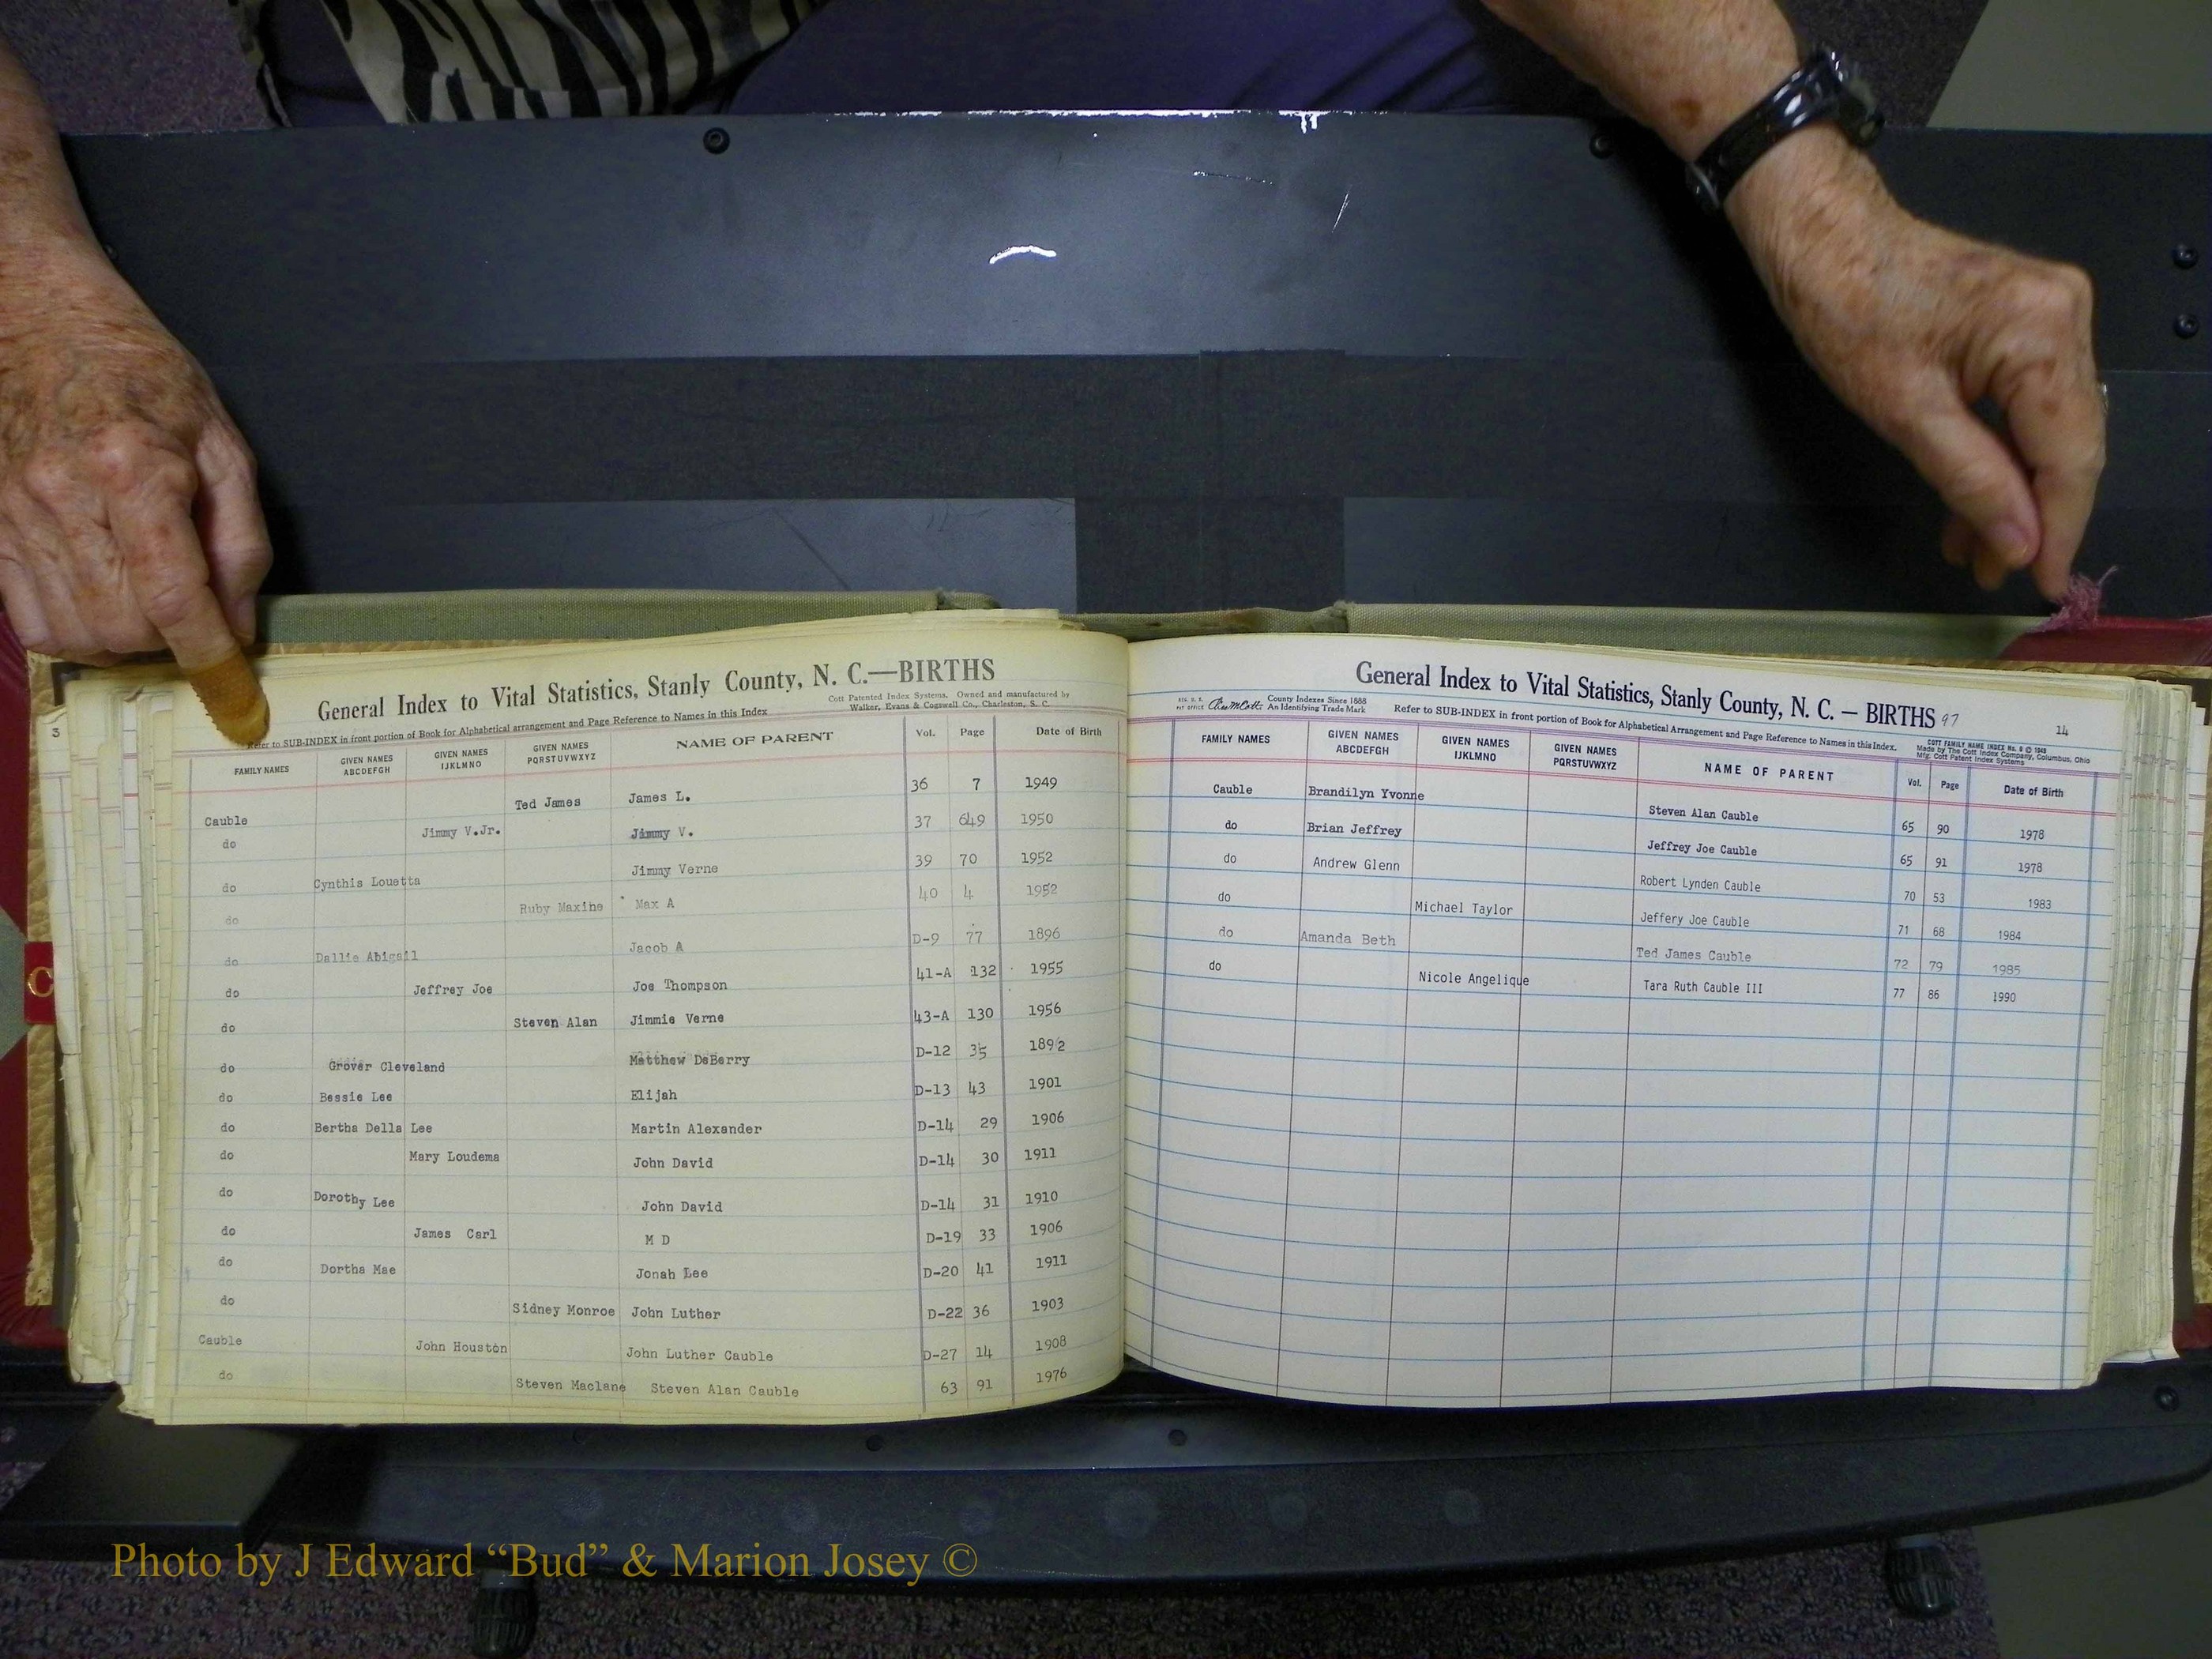 General Index to Vital Statistics, Stanly County, N. C.—BIRTHS
Cott Patented Index Systems. Owned and manufactured by
Walker, Evans & Cogswell Co., Charleston, S. C.
Refer to SUB-INDEX in front portion of Book for Alphabetical arrangement and Page Reference to Names in this Index
FAMILY NAMES GIVEN NAMES ABCDEFGH GIVEN NAMES IJKLMNO GIVEN NAMES PQRSTUVWXYZ NAME OF PARENT Vol. Page Date of Birth
Cauble Ted James James L. 36 7 1949
do Jimmy V.Jr. Jimmy V. 37 649 1950
do Cynthis Louetta Jimmy Verne 39 70 1952
do Ruby Maxine Max A 40 4 1952
do Dallie Abigail Jacob A D-9 77 1896
do Jeffrey Joe Joe Thompson 41-A 132 1955
do Steven Alan Jimmie Verne 43-A 130 1956
do Grover Cleveland Matthew DeBerry D-12 35 1892
do Bessie Lee Elijah D-13 43 1901
do Bertha Della Lee Martin Alexander D-14 29 1906
do Mary Loudema John David D-14 30 1911
do Dorothy Lee John David D-14 31 1910
do James Carl M D D-19 33 1906
do Dortha Mae Jonah Lee D-20 41 1911
do Sidney Monroe John Luther D-22 36 1903
Cauble John Houston John Luther Cauble D-27 14 1908
do Steven Maclane Steven Alan Cauble 63 91 1976
3
C
General Index to Vital Statistics, Stanly County, N. C. — BIRTHS 97
14
County Indexes Since 1888
An Identifying Trade Mark
Refer to SUB-INDEX in front portion of Book for Alphabetical Arrangement and Page Reference to Names in this Index.
Made by The Cott Index Company, Columbus, Ohio
Mfg. Cott Patent Index Systems
FAMILY NAMES GIVEN NAMES ABCDEFGH GIVEN NAMES IJKLMNO GIVEN NAMES PQRSTUVWXYZ NAME OF PARENT Vol. Page Date of Birth
Cauble Brandilyn Yvonne Steven Alan Cauble 65 90 1978
do Brian Jeffrey Jeffrey Joe Cauble 65 91 1978
do Andrew Glenn Robert Lynden Cauble 70 53 1983
do Michael Taylor Jeffery Joe Cauble 71 68 1984
do Amanda Beth Ted James Cauble 72 79 1985
do Nicole Angelique Tara Ruth Cauble III 77 86 1990
Photo by J Edward “Bud” & Marion Josey ©